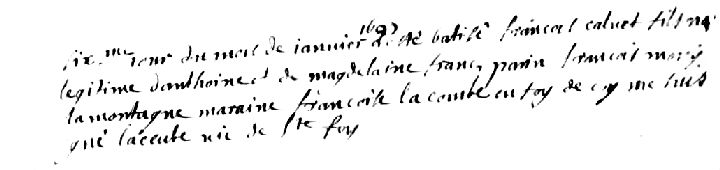 six.me iour du mois de ianvier 1692 a esté batisé françois calvet fils na
legitime d'anthoine et de magdelaine franç parin françois
la montagne maraine françoise la combe en foy de cy me suis
gné lacombe vic de Ste foy